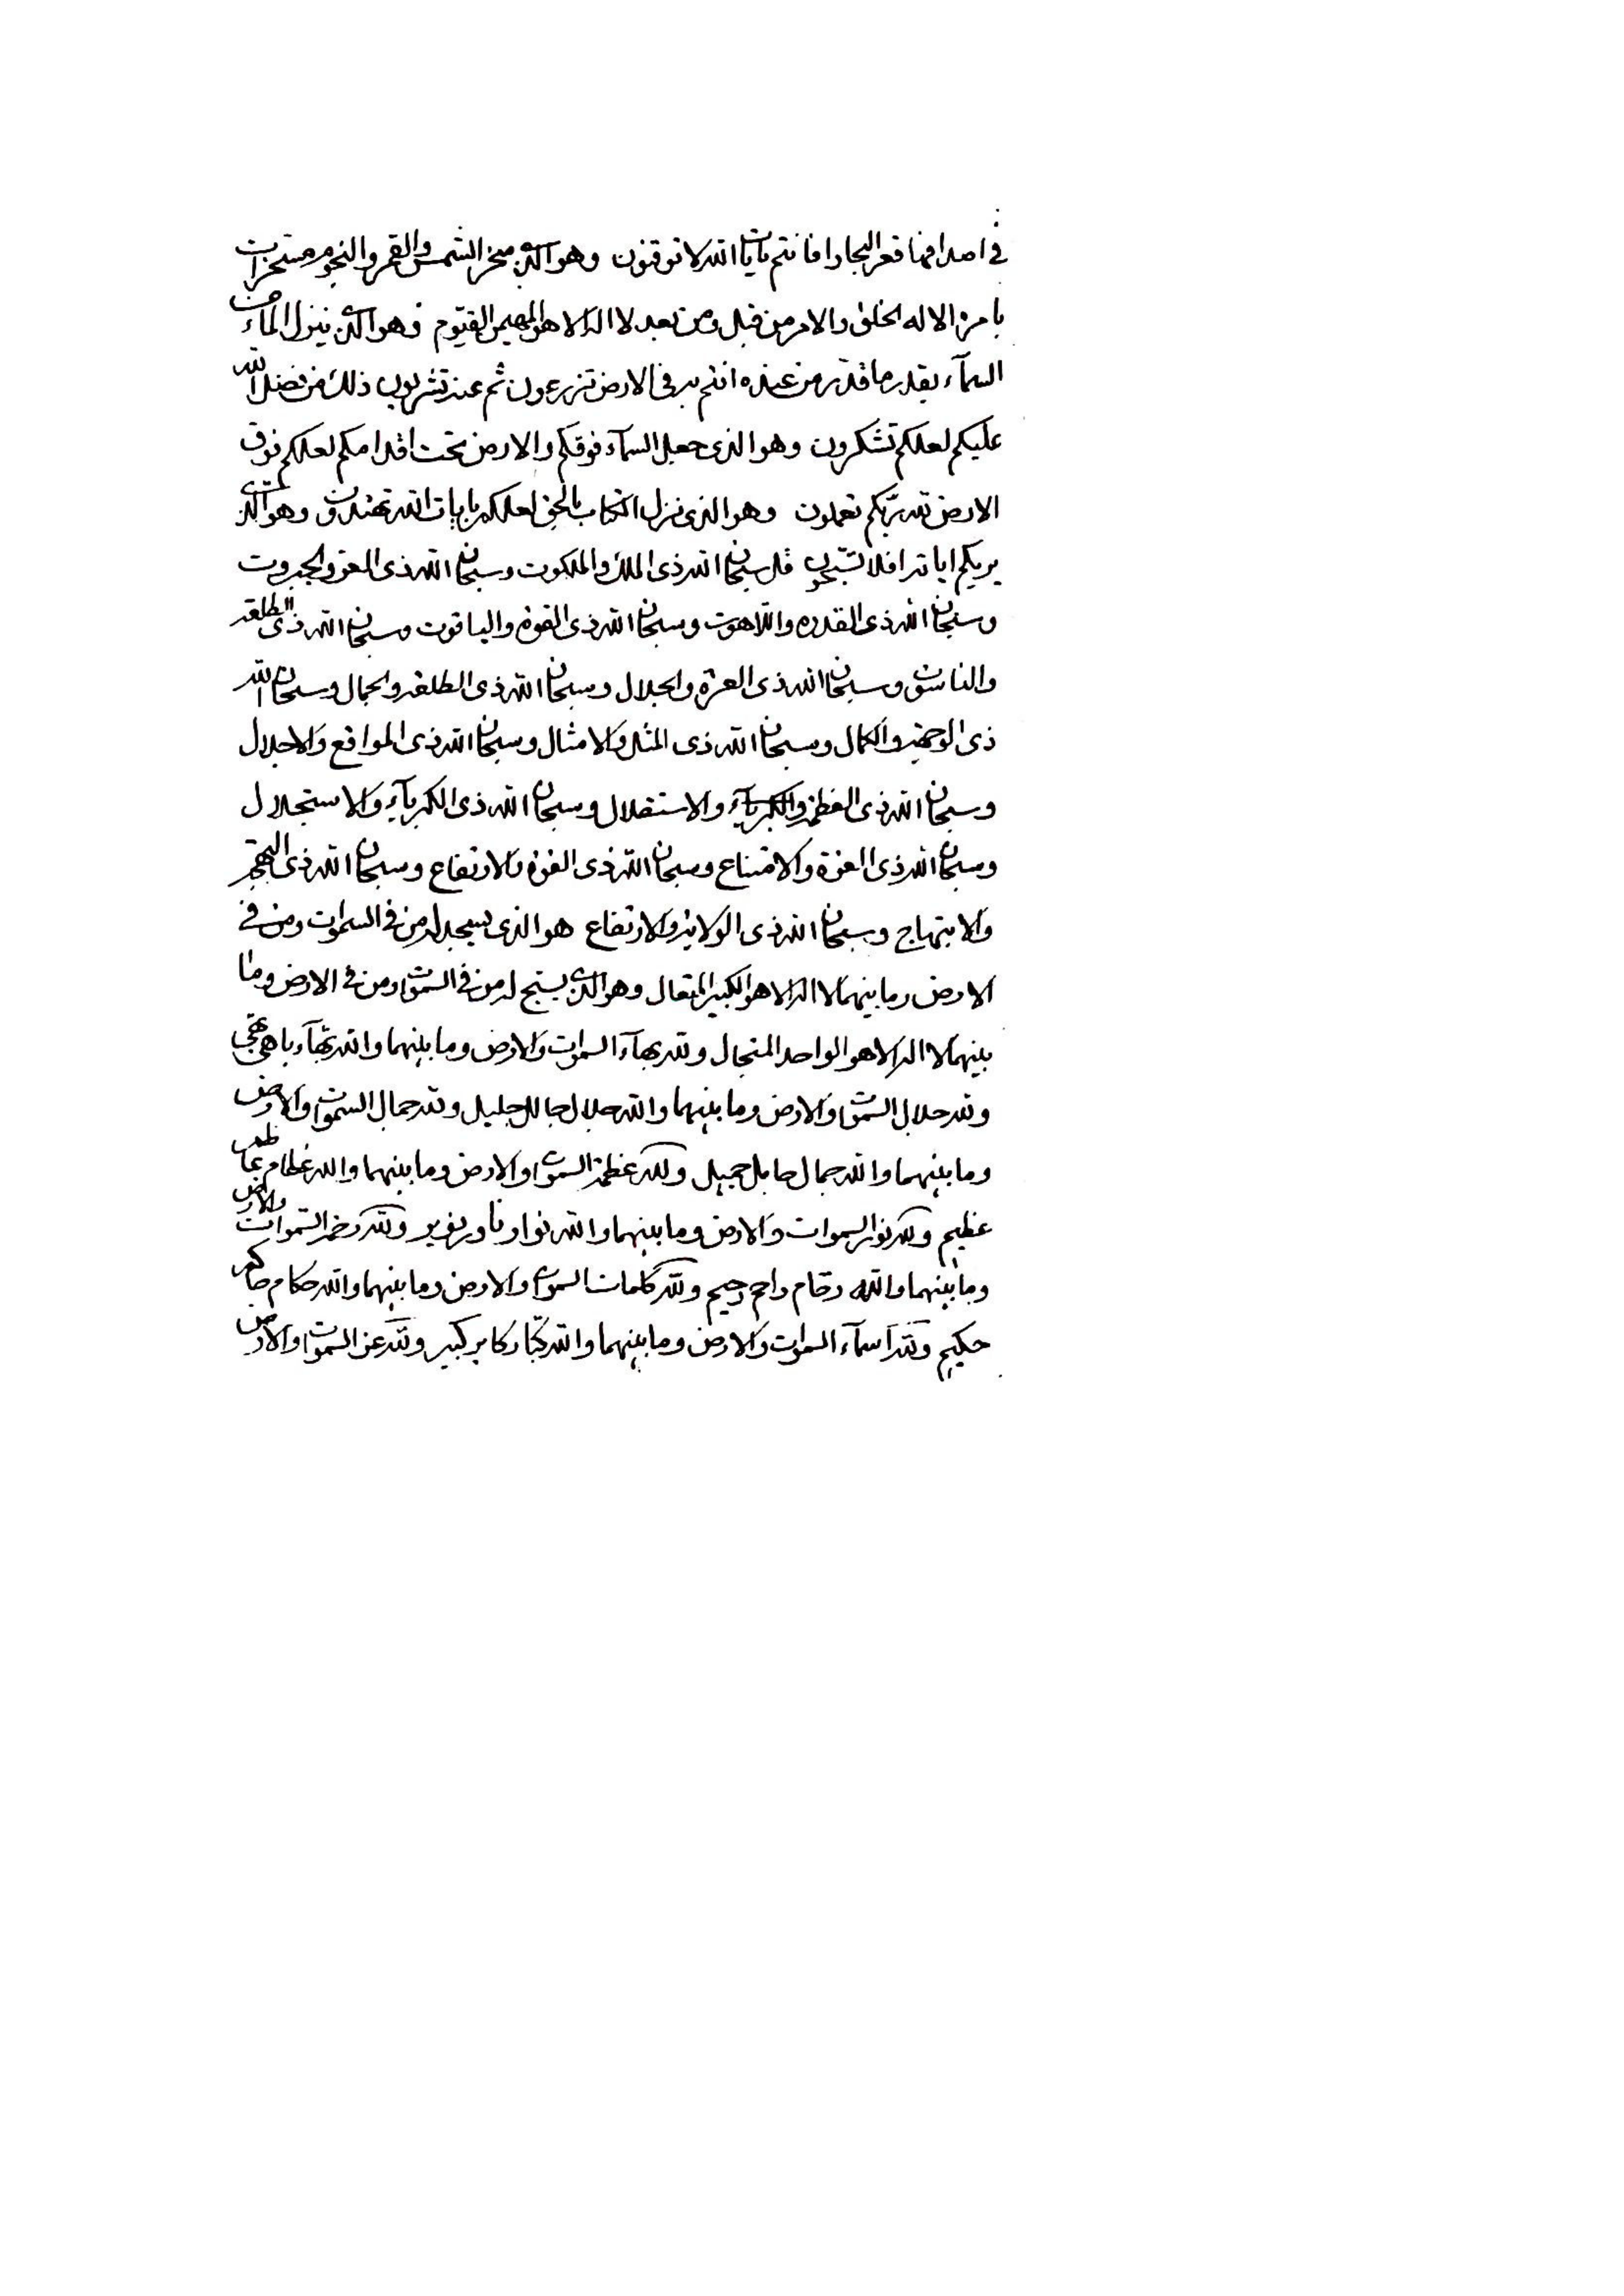 في اصدافها قعر البحار افانتم بايات الله لا توقنون وهو الذي سخر الشمس والقمر والنجوم مسخرات
بامره الا له الخلق والامر من قبل ومن بعد لا اله الا هو المهيمن القيوم وهو الذي ينزل الماء من
السمآء بقدر ما قدر من عنده انتم به في الارض تزرعون ثم عنه تشربون ذلك من فضل الله
عليكم لعلكم تشكرون وهو الذي جعل السمآء فوقكم والارض تحت اقدامكم لعلكم فوق
الارض لله ربكم تعملون وهو الذي نزل الكتاب بالحق لعلكم بايات الله تهتدون وهو الذي
يريكم اياته افلا تسبحون قل سبحان الله ذي الملك والملكوت وسبحان الله ذي العز والجبروت
وسبحان الله ذي القدره واللاهوت وسبحان الله ذي القوة والياقوت وسبحان الله ذي الطلعه
والناسوت وسبحان الله ذي العزة والجلال وسبحان الله ذي الطلعه والجمال وسبحان الله
ذي الوجهة والكمال وسبحان الله ذي المثل والامثال وسبحان الله ذي المواقع والاجلال
وسبحان الله ذي العظمة والاستقلال وسبحان الله ذي الكبريآء والاستجلال
وسبحان الله ذي العزة والامتناع وسبحان الله ذي القوة والارتفاع وسبحان الله ذي البهجة
والابتهاج وسبحان الله ذي الولاية والارتفاع هو الذي يسجد له من في السموات ومن في
الارض وما بينهما لا اله الا هو الكبير المتعال وهو الذي يسبح له من في السموات ومن في الارض وما
بينهما لا اله الا هو الواحد المتجال ولله بهآء السموات والارض وما بينهما والله بهآء باهي بهي
ولله جلال السموات والارض وما بينهما والله جلال جالل جليل ولله جمال السموات والارض
وما بينهما والله جمال جامل جميل ولله عظمة السموات والارض وما بينهما والله عظام عاظم
عظيم ولله نور السموات والارض وما بينهما والله نوار ناور نوير ولله رحمة السموات والارض
وما بينهما والله رحام راحم رحيم ولله كلمات السموات والارض وما بينهما والله حكام حاكم
حكيم ولله اسمآء السموات والارض وما بينهما والله كبار كابر كبير ولله عز السموات والارض